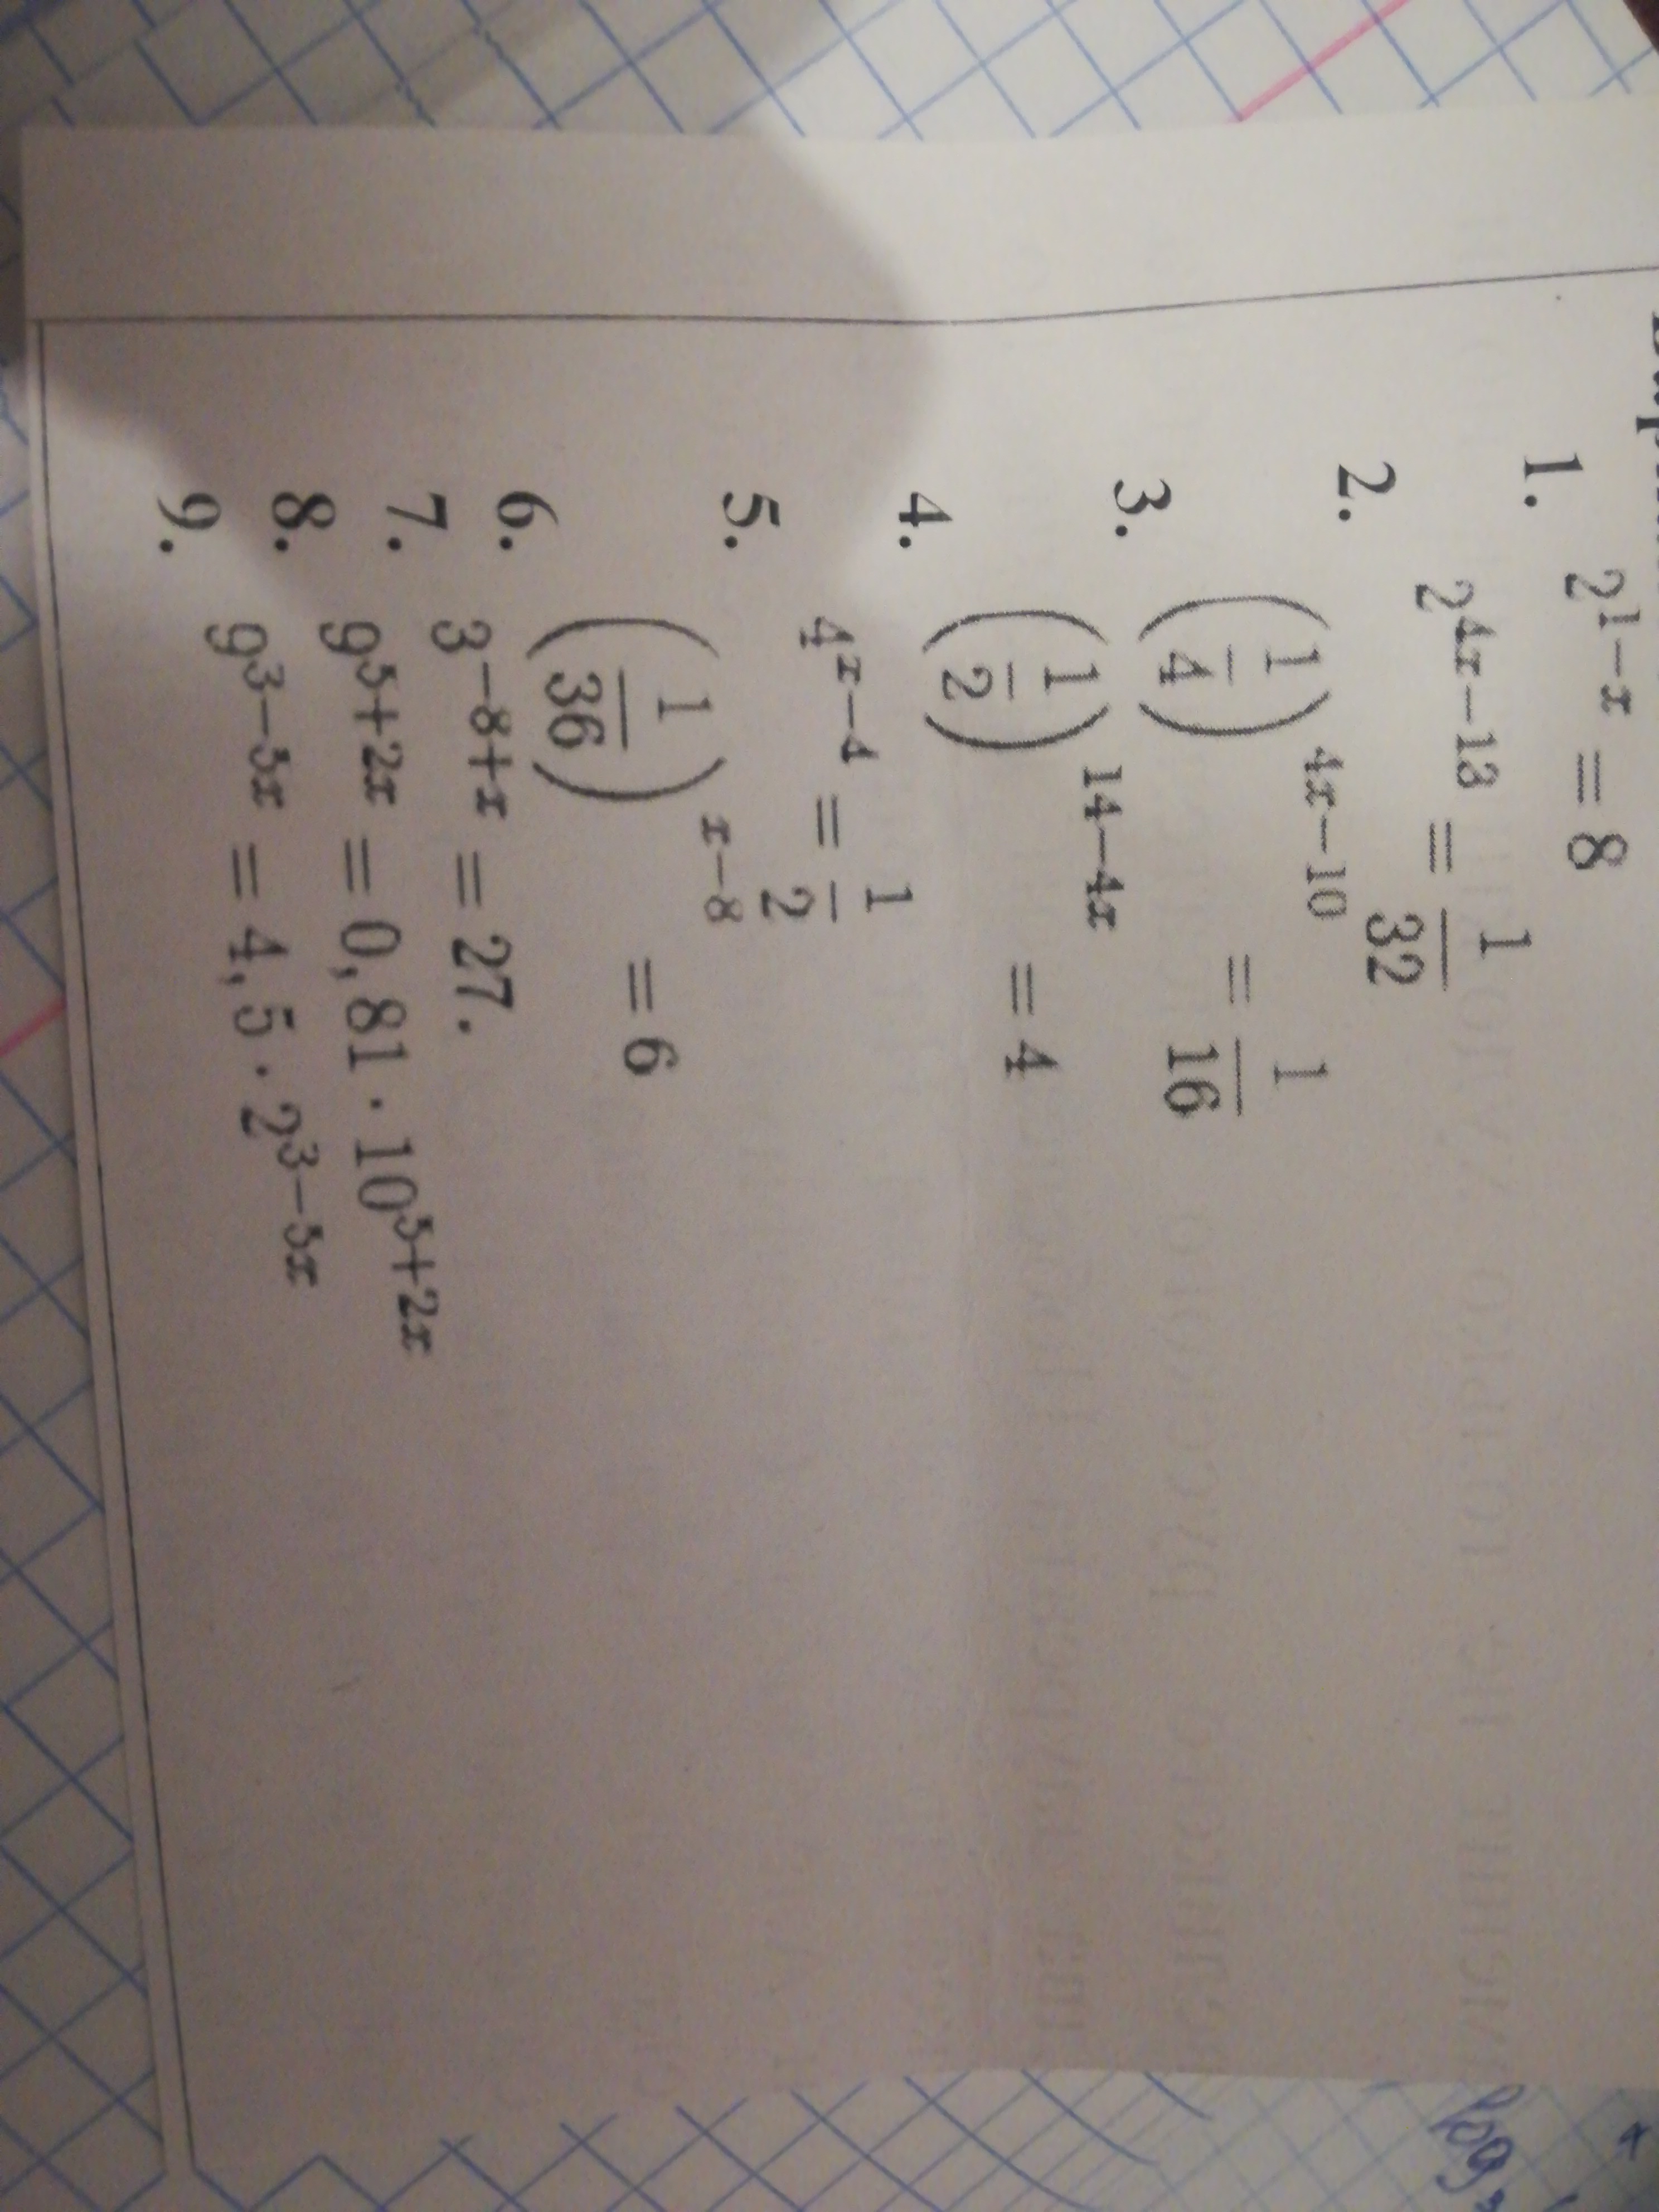 1. 2^{1-x} = 8
2. 2^{4x-13} = \frac{1}{32}
3. \left(\frac{1}{4}\right)^{4x-10} = \frac{1}{16}
4. \left(\frac{1}{2}\right)^{14-4x} = 4
5. 4^{x-4} = \frac{1}{2}
6. \left(\frac{1}{36}\right)^{x-8} = 6
7. 3^{-8+x} = 27.
8. 9^{5+2x} = 0,81 · 10^{5+2x}
9. 9^{3-5x} = 4,5 · 2^{3-5x}
log